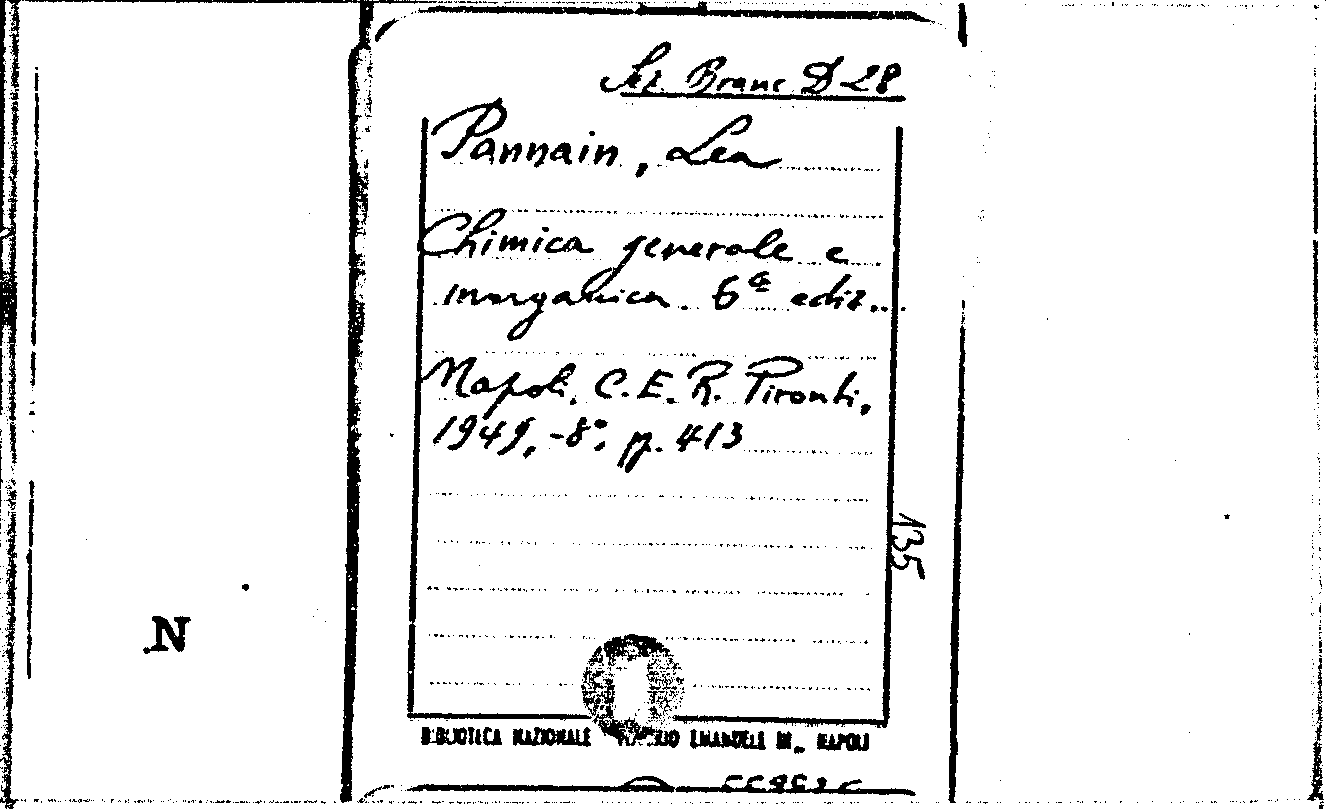 Sez. Branc. D 28
Pannain, Lea
Chimica generale e
inorganica. 6ª ediz...
Napoli, C.E.R. Pironti,
1949, -8°, p. 413
135
N
BIBLIOTECA NAZIONALE EMANUELE III NAPOLI